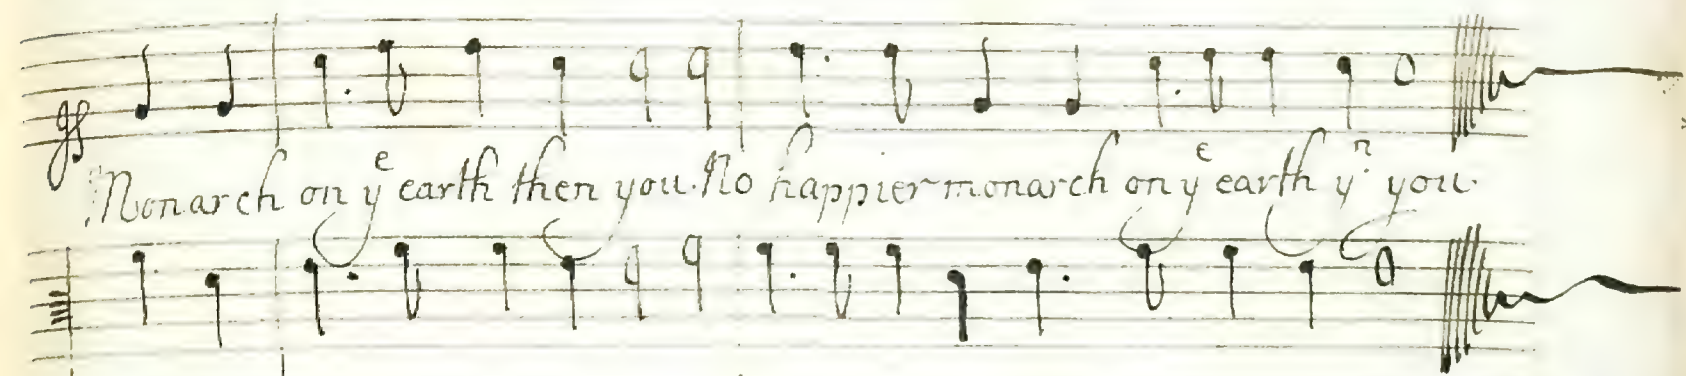 Monarch on yᵉ earth then you. No happier monarch on yᵉ earth yⁿ you.